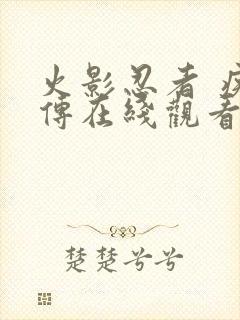 火影忍者 疾
傳在綫觀看
楚楚兮兮